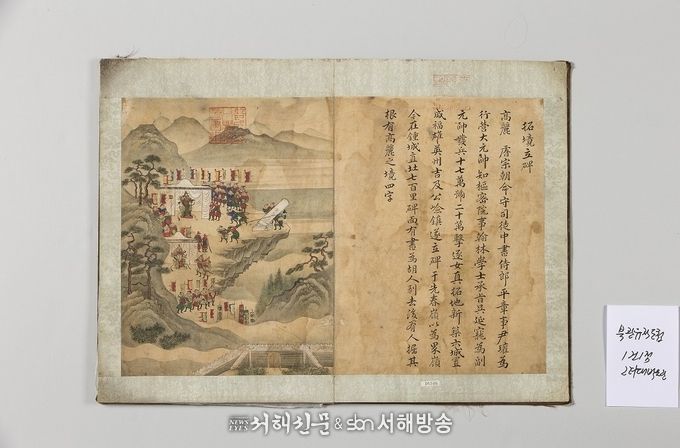 拓境立碑
高麗 睿宗朝命守司徒中書侍郎平章事尹瓘為
行營大元帥知樞密院事翰林學士承旨吳延寵為副
元帥發兵十七萬號二十萬擊逐女真拓地新築六城置
咸福雄英州吉及公嶮鎮遂立碑于先春嶺以為界嶺
今在鍾城直北七百里碑面有書為胡人剝去後有人掘其
根有高麗之境四字
북관유적도첩
1건1점
고려대박물관
NEWS EYES 서해신문 & sbn 서해방송